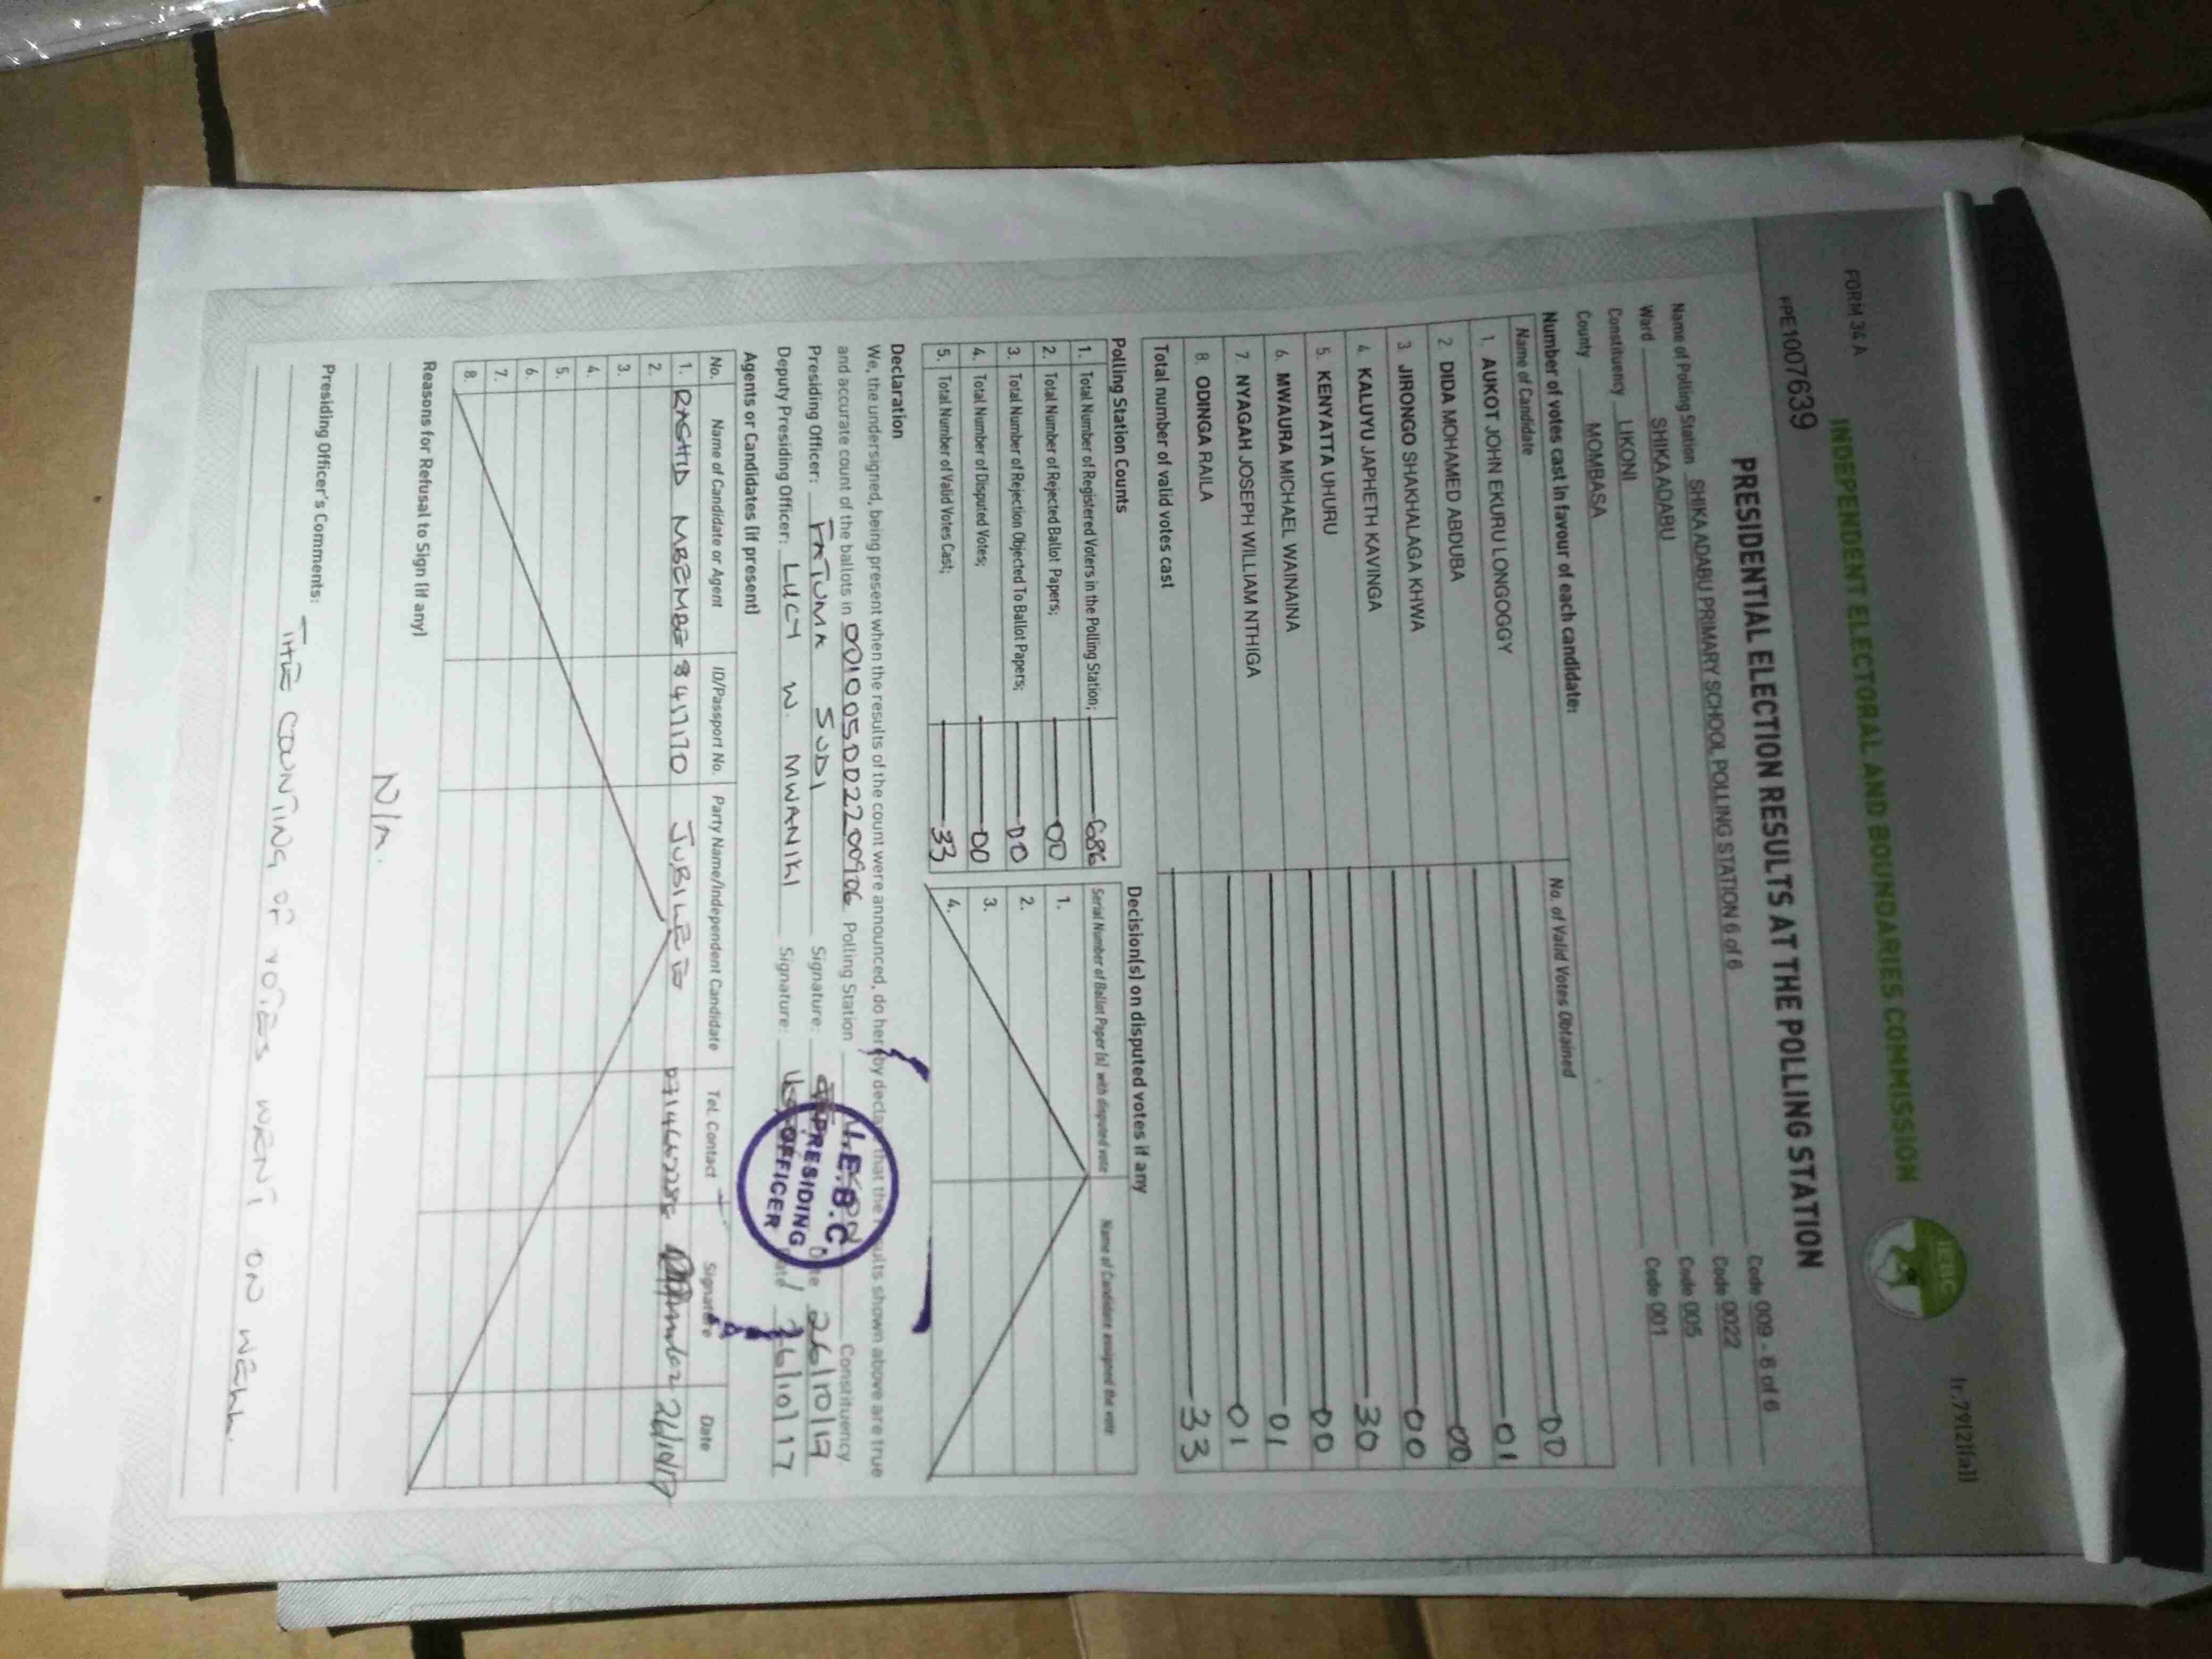 FORM 34 A
r.79(2)(a)
INDEPENDENT ELECTORAL AND BOUNDARIES COMMISSION
IEBC
PPE1007639
PRESIDENTIAL ELECTION RESULTS AT THE POLLING STATION
Name of Polling Station SHIKA ADABU PRIMARY SCHOOL POLLING STATION 6 of 6 Code 009 - 6 of 6
Ward SHIKA ADABU Code 0022
Constituency LIKONI Code 005
County MOMBASA Code 001
Number of votes cast in favour of each candidate:
Name of Candidate No. of Valid Votes Obtained
1. AUKOT JOHN EKURU LONGOGGY 00
2. DIDA MOHAMED ABDUBA 01
3. JIRONGO SHAKHALAGA KHWA 00
4. KALUYU JAPHETH KAVINGA 00
5. KENYATTA UHURU 30
6. MWAURA MICHAEL WAINAINA 00
7. NYAGAH JOSEPH WILLIAM NTHIGA 01
8. ODINGA RAILA 01
Total number of valid votes cast 33
Polling Station Counts
1. Total Number of Registered Voters in the Polling Station; 686
2. Total Number of Rejected Ballot Papers; 00
3. Total Number of Rejection Objected To Ballot Papers; 00
4. Total Number of Disputed Votes; 00
5. Total Number of Valid Votes Cast; 33
Decision(s) on disputed votes if any
Serial Number of Ballot Paper (s) with disputed vote Name of Candidate assigned the vote
1.
2.
3.
4.
Declaration
We, the undersigned, being present when the results of the count were announced, do hereby declare that the results shown above are true
and accurate count of the ballots in 001005002200906 Polling Station Constituency.
Presiding Officer: FATUMA SUDI Signature: Date 26/10/17
Deputy Presiding Officer: LUCY W. MWANIKI Signature: Date 26/10/17
I.E.B.C.
PRESIDING
OFFICER
Agents or Candidates (if present)
No. Name of Candidate or Agent ID/Passport No. Party Name/Independent Candidate Tel. Contact Signature Date
1. RASHID MBEMBE 8417170 JUBILEE 26/10/17
2.
3.
4.
5.
6.
7.
8.
Reasons for Refusal to Sign (if any)
N/A.
Presiding Officer's Comments:
THE COUNTING OF VOTES WENT ON WELL.